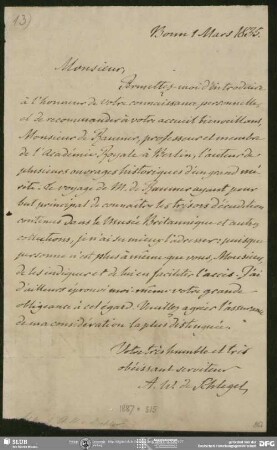 13)
Bonn 1 Mars 1835.
Monsieur,
Permettez-moi d'introduire
à l'honneur de votre connaissance personnelle,
et de recommander à votre accueil bienveillant,
Monsieur de Raumer, professeur et membre
de l'Académie Royale à Berlin, l'auteur de
plusieurs ouvrages historiques d'un grand mé-
rite. Le voyage de M. de Raumer ayant pour
but principal de connaître les trésors d'érudition
contenus dans le Musée Britannique et autres
collections, je n'ai su mieux l'adresser, puisque
personne n'est plus à même que vous, Monsieur,
de les indiquer et de lui en faciliter l'accès. J'ai
d'ailleurs éprouvé moi-même votre grande
obligeance à cet égard. Veuillez agréer l'assurance
de ma considération la plus distinguée.
Votre très humble et très
obéissant serviteur
A. W. de Schlegel
SLUB